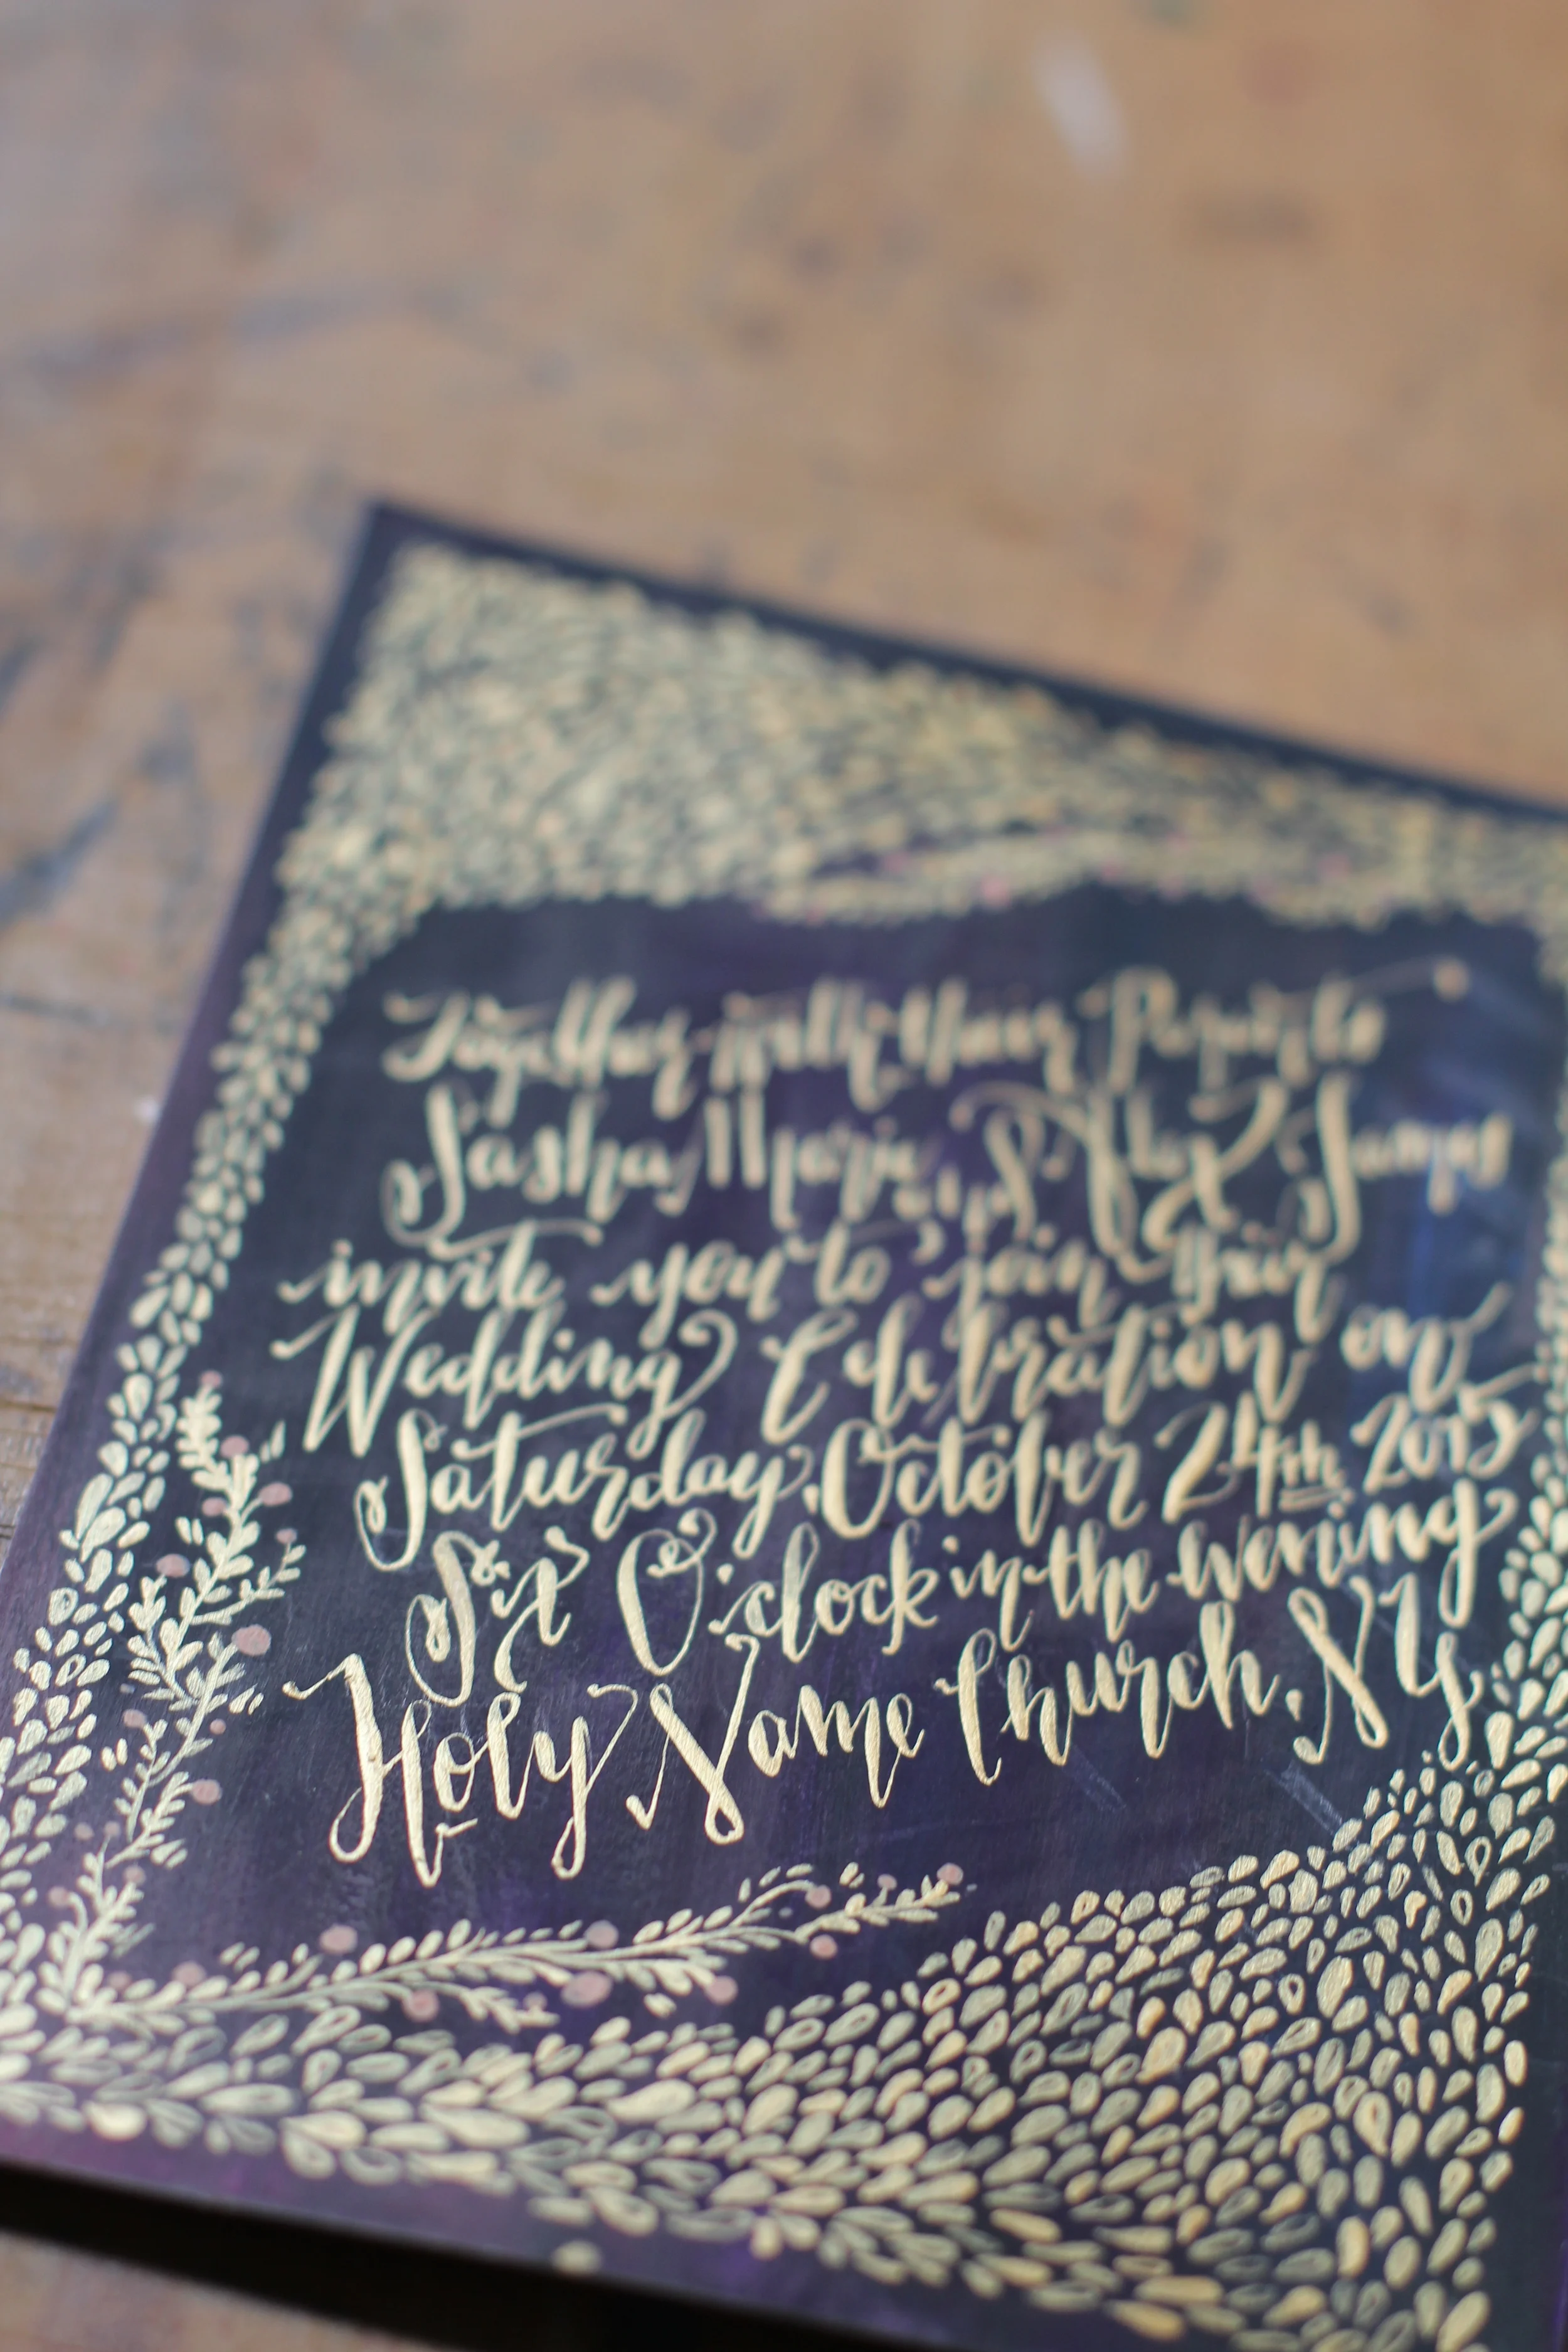 Together with their Parents
Sasha Marie & Alex James
invite you to join their
Wedding Celebration on
Saturday, October 24th 2015
Six O'clock in the evening
Holy Name Church, NY